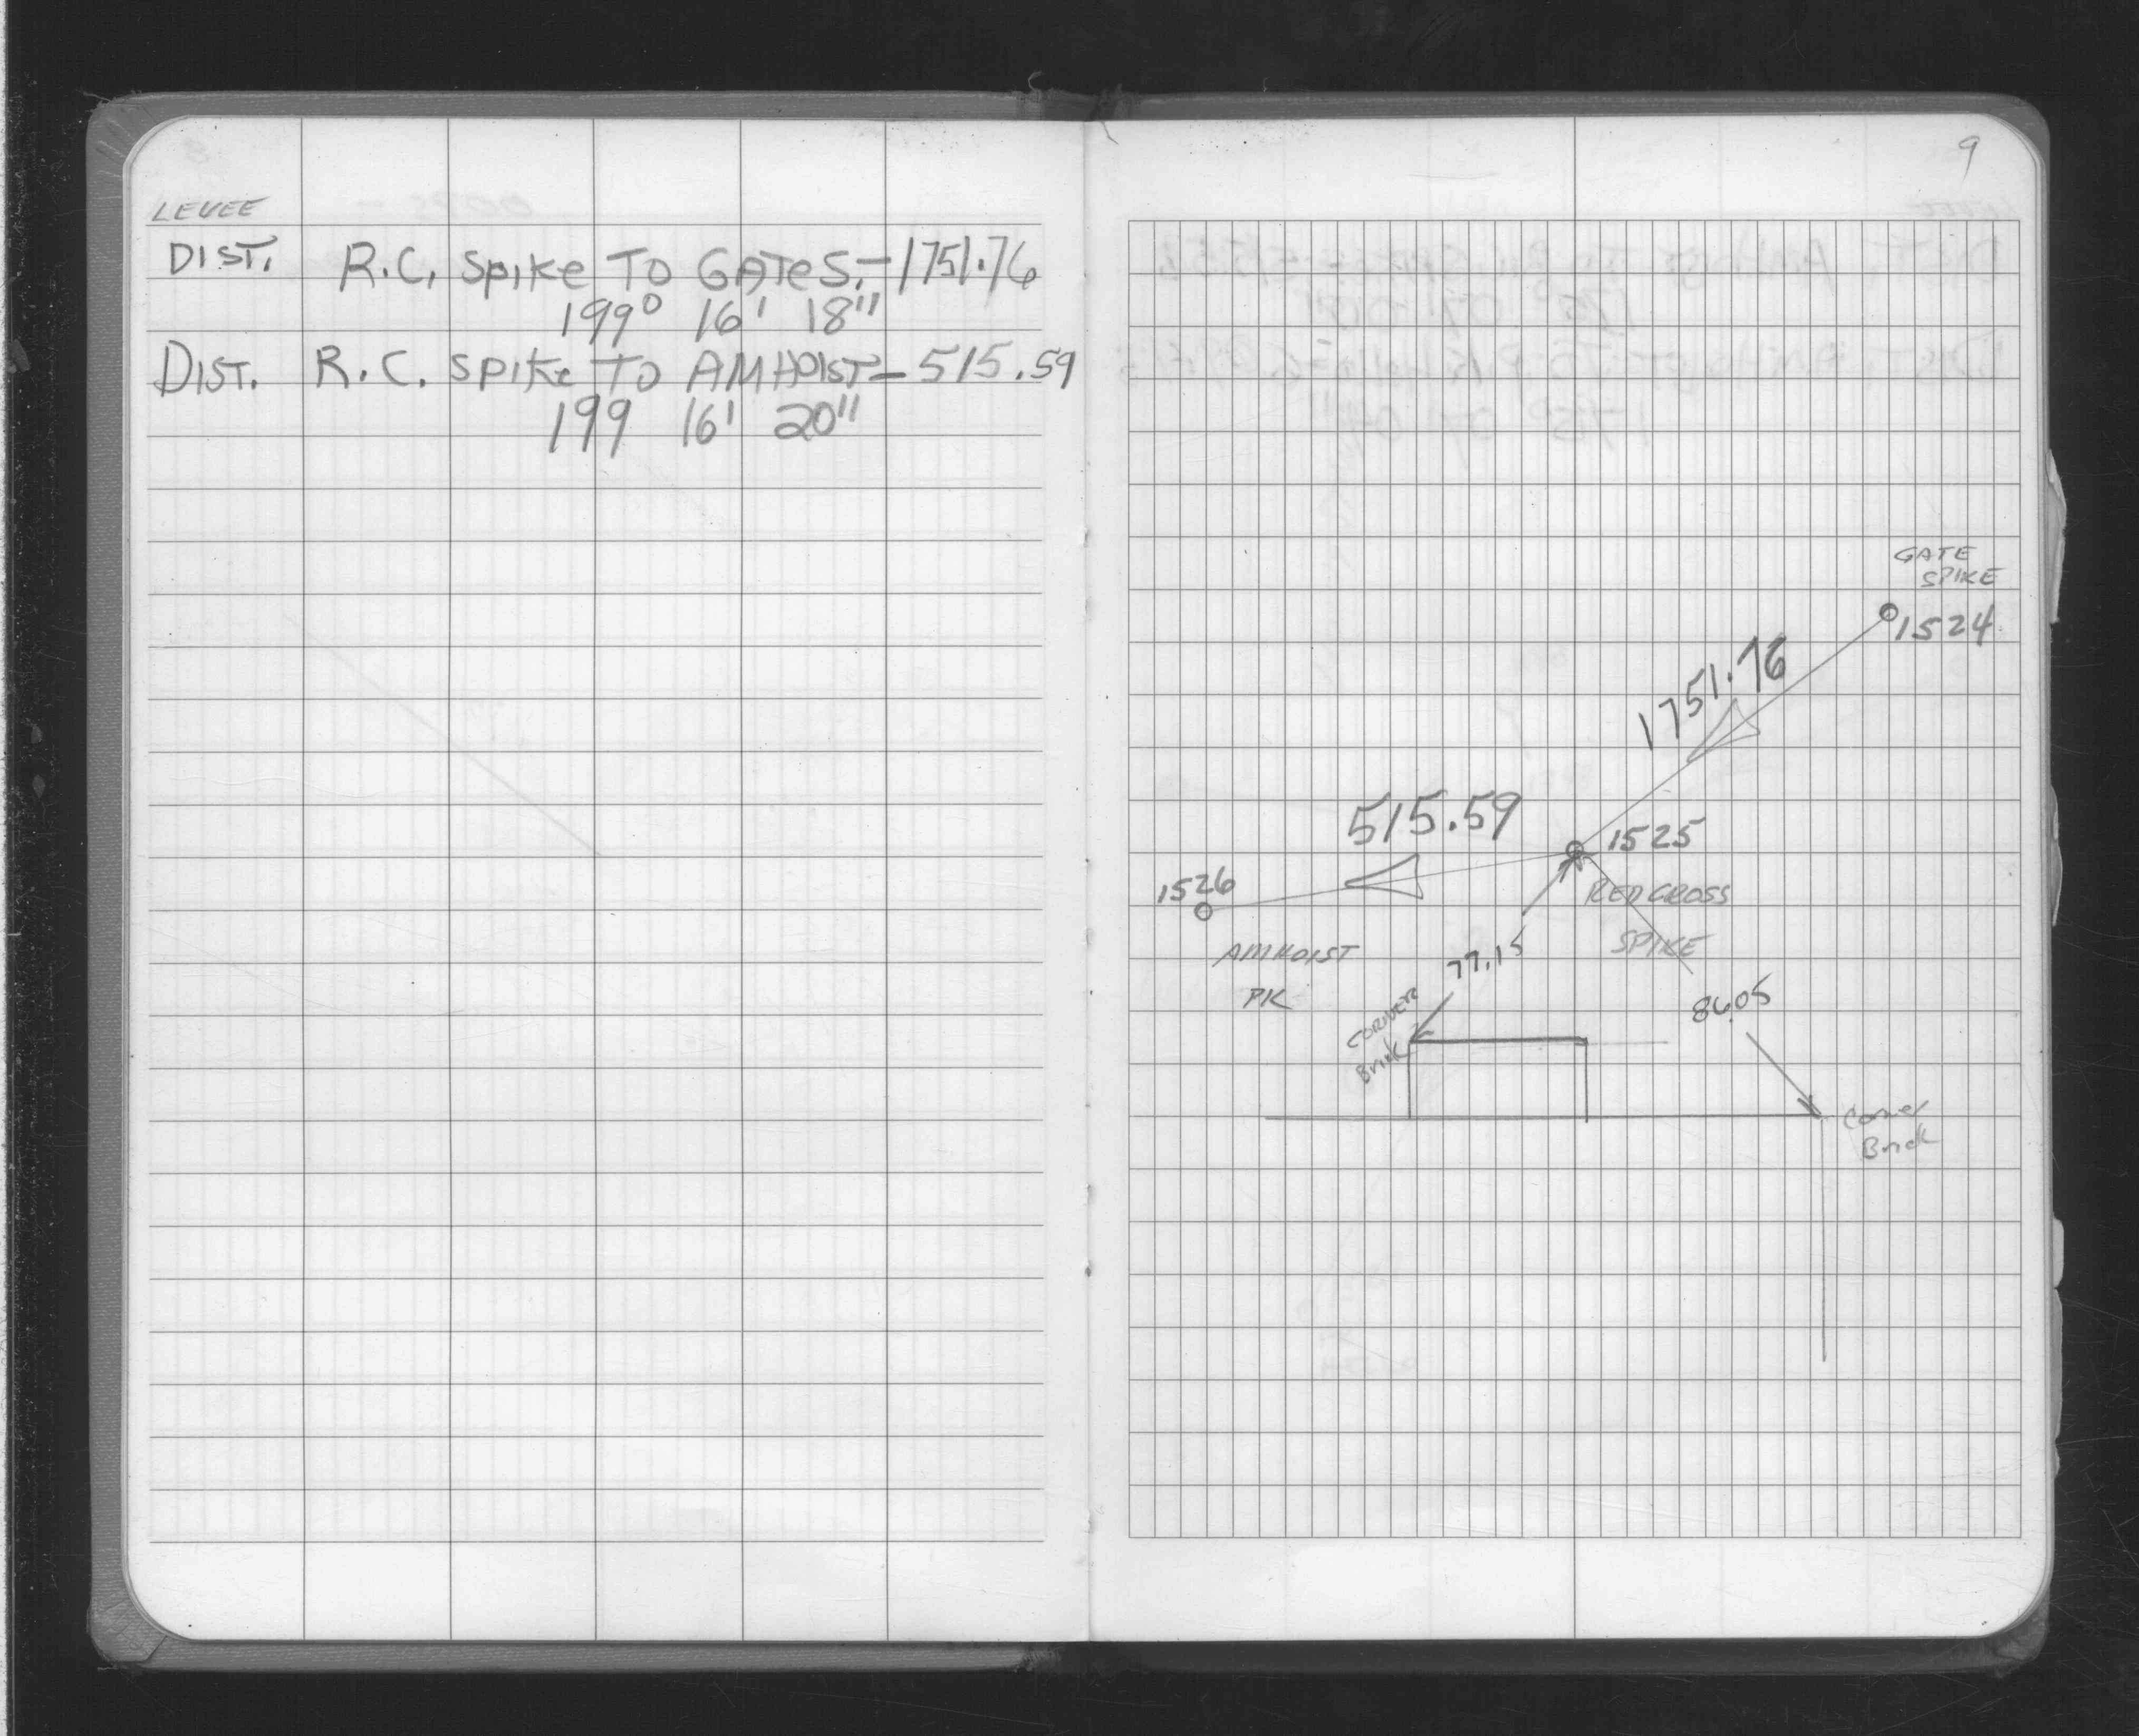 LEVEE
DIST. R.C. Spike TO GATES.-1751.76
199° 16' 18"
DIST. R.C. Spike TO AMHOIST-515.59
199 16' 20"
9
GATE
SPIKE
1524
1751.76
515.59
1525
1526
RED CROSS
SPIKE
AMHOIST
PK
77.15
86.05
CORNER
Brick
Corner
Brick